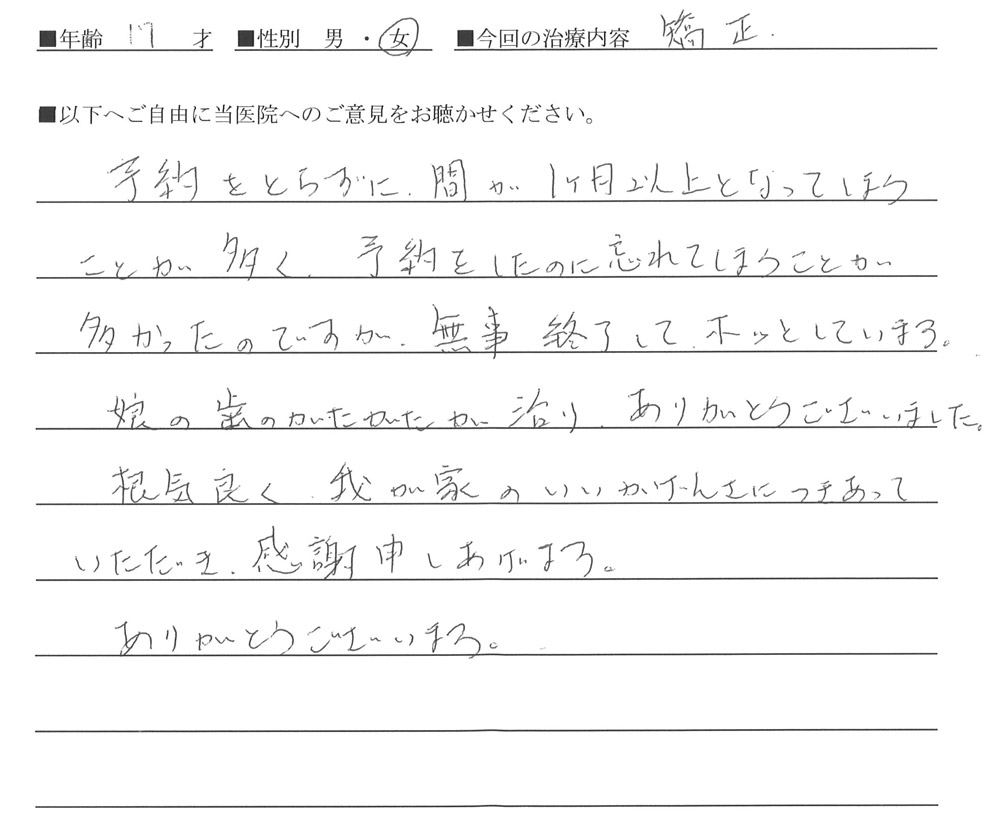 ■年齢 17 才 ■性別 男・女 ■今回の治療内容 矯正.
■以下へご自由に当医院へのご意見をお聴かせください。
予約をとらずに、間が1ヶ月以上となってしまう
ことが多く、予約をしたのに忘れてしまうことが
多かったのですが、無事終了して、ホッとしています。
娘の歯のがたがたが治り、ありがとうございました。
根気良く、我が家のいいかげんさにつきあって
いただき、感謝申しあげます。
ありがとうございます。